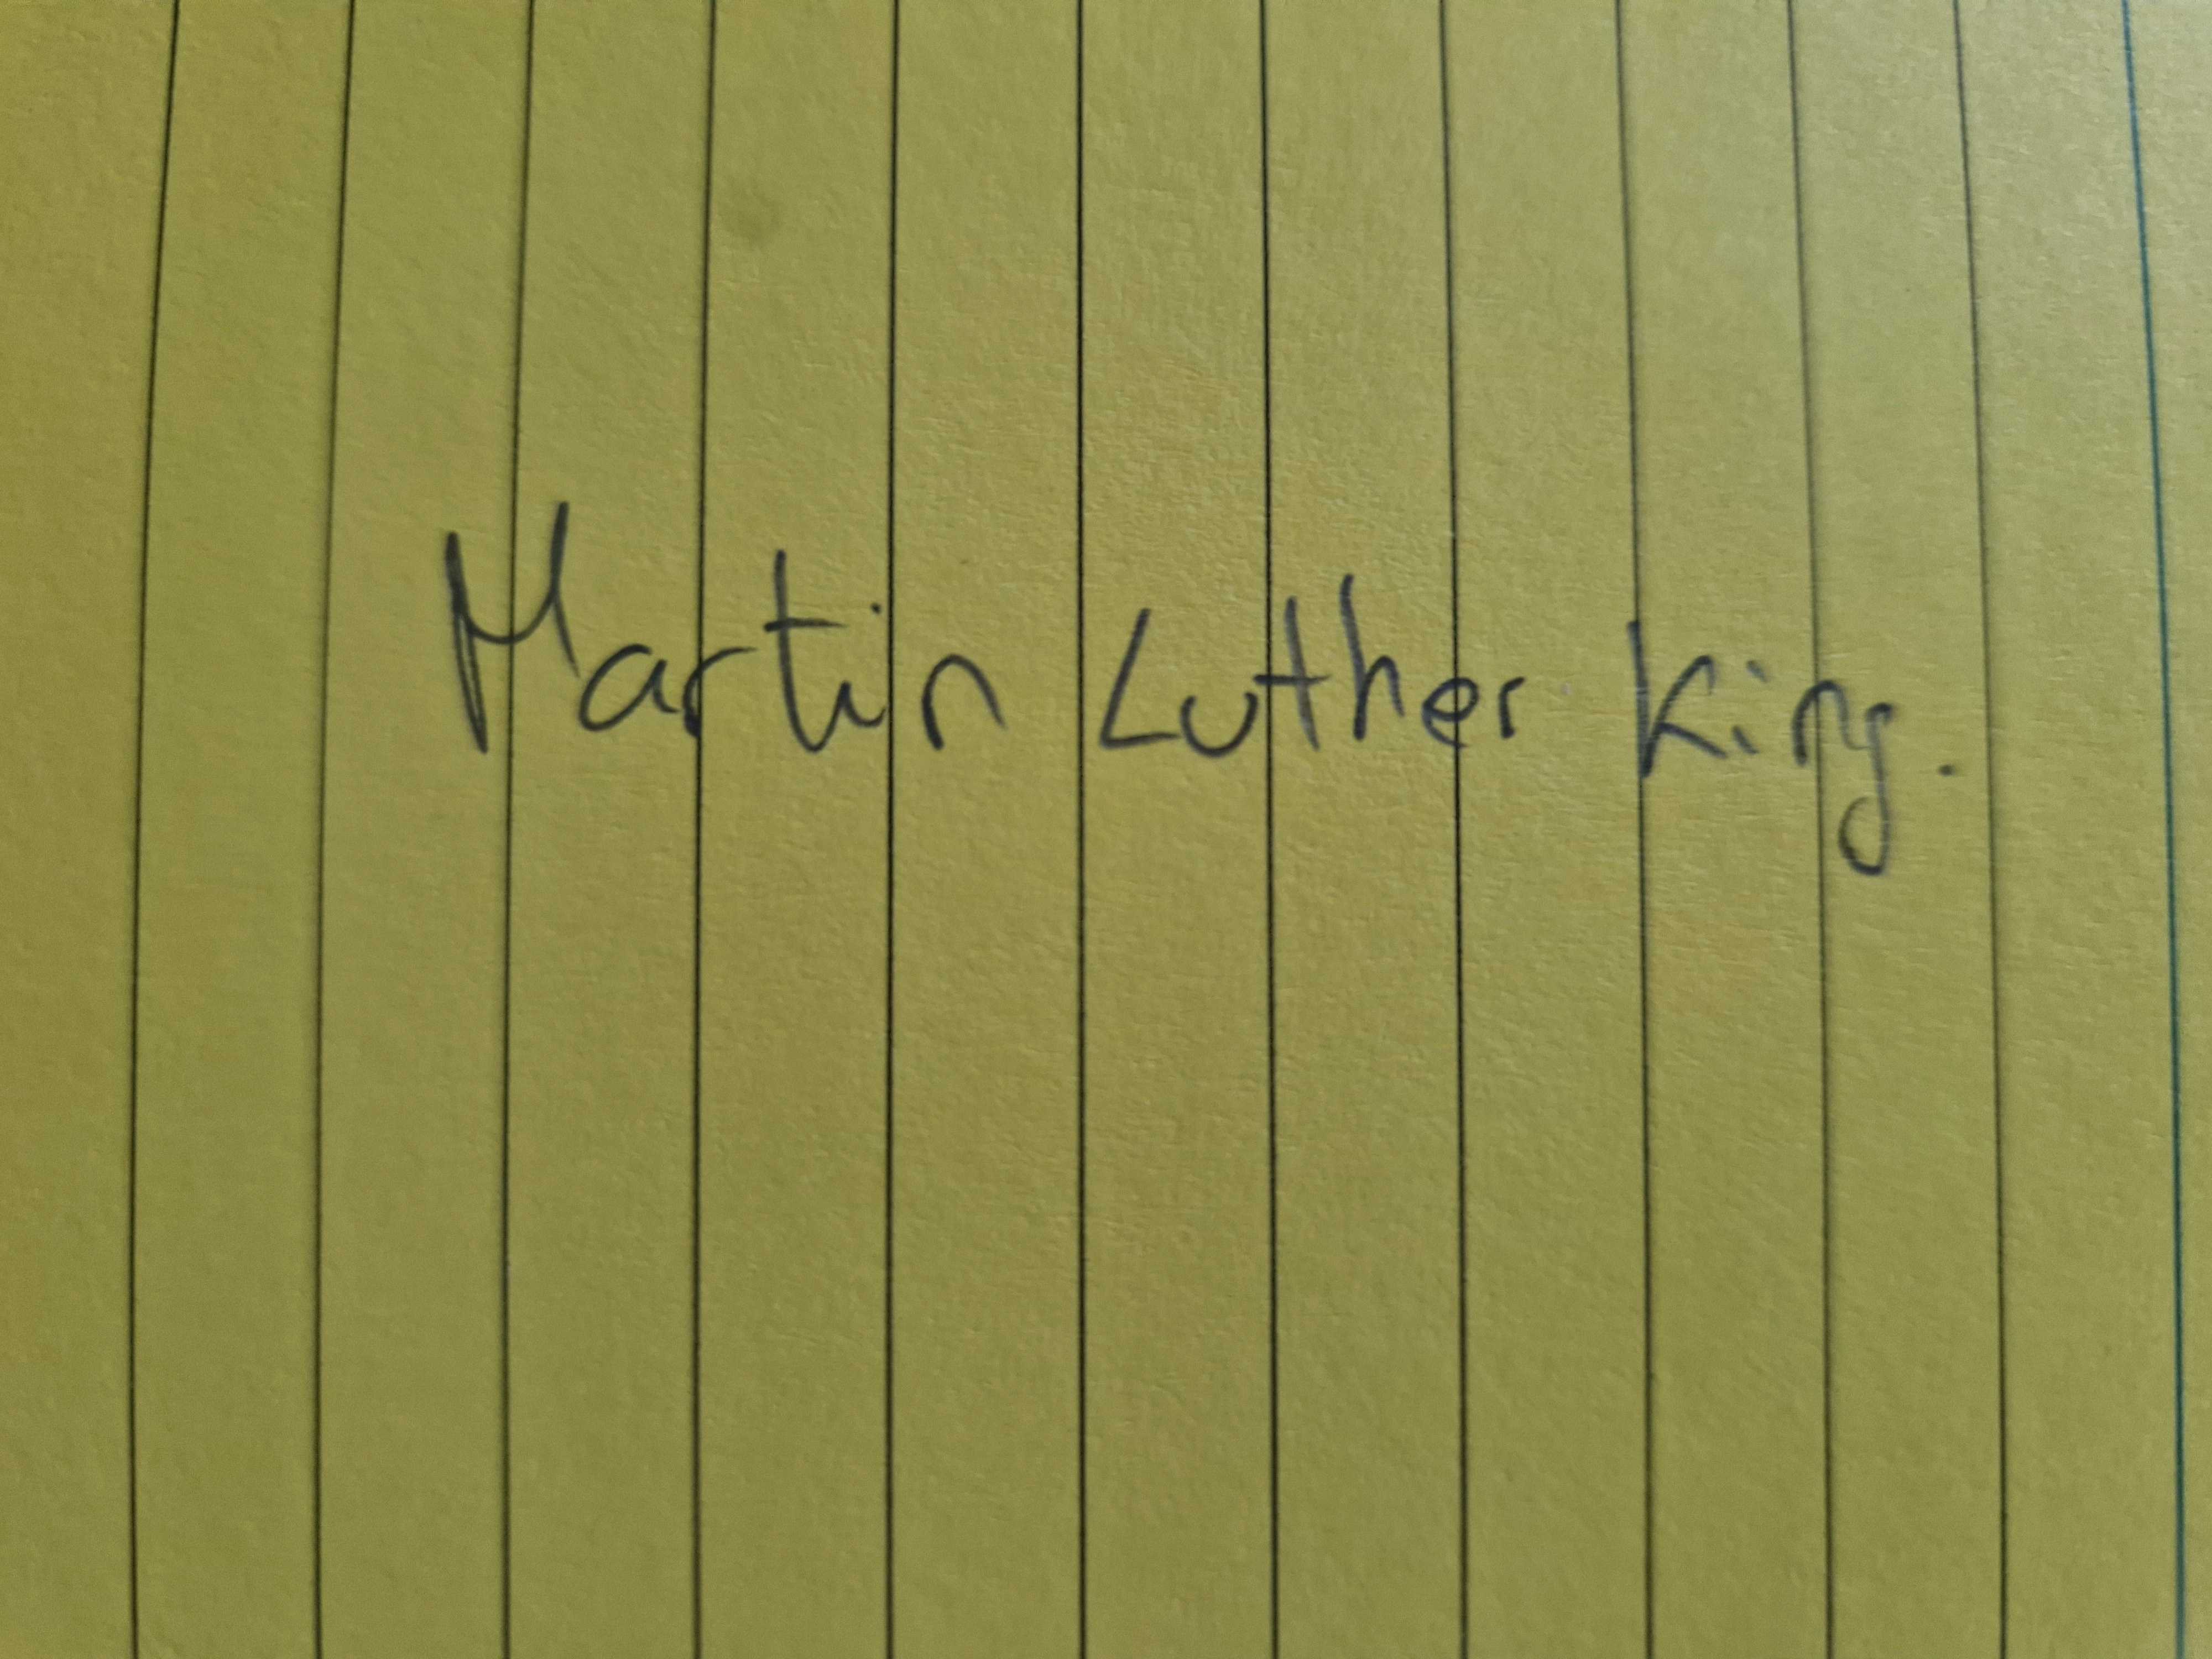 Martin Luther King.